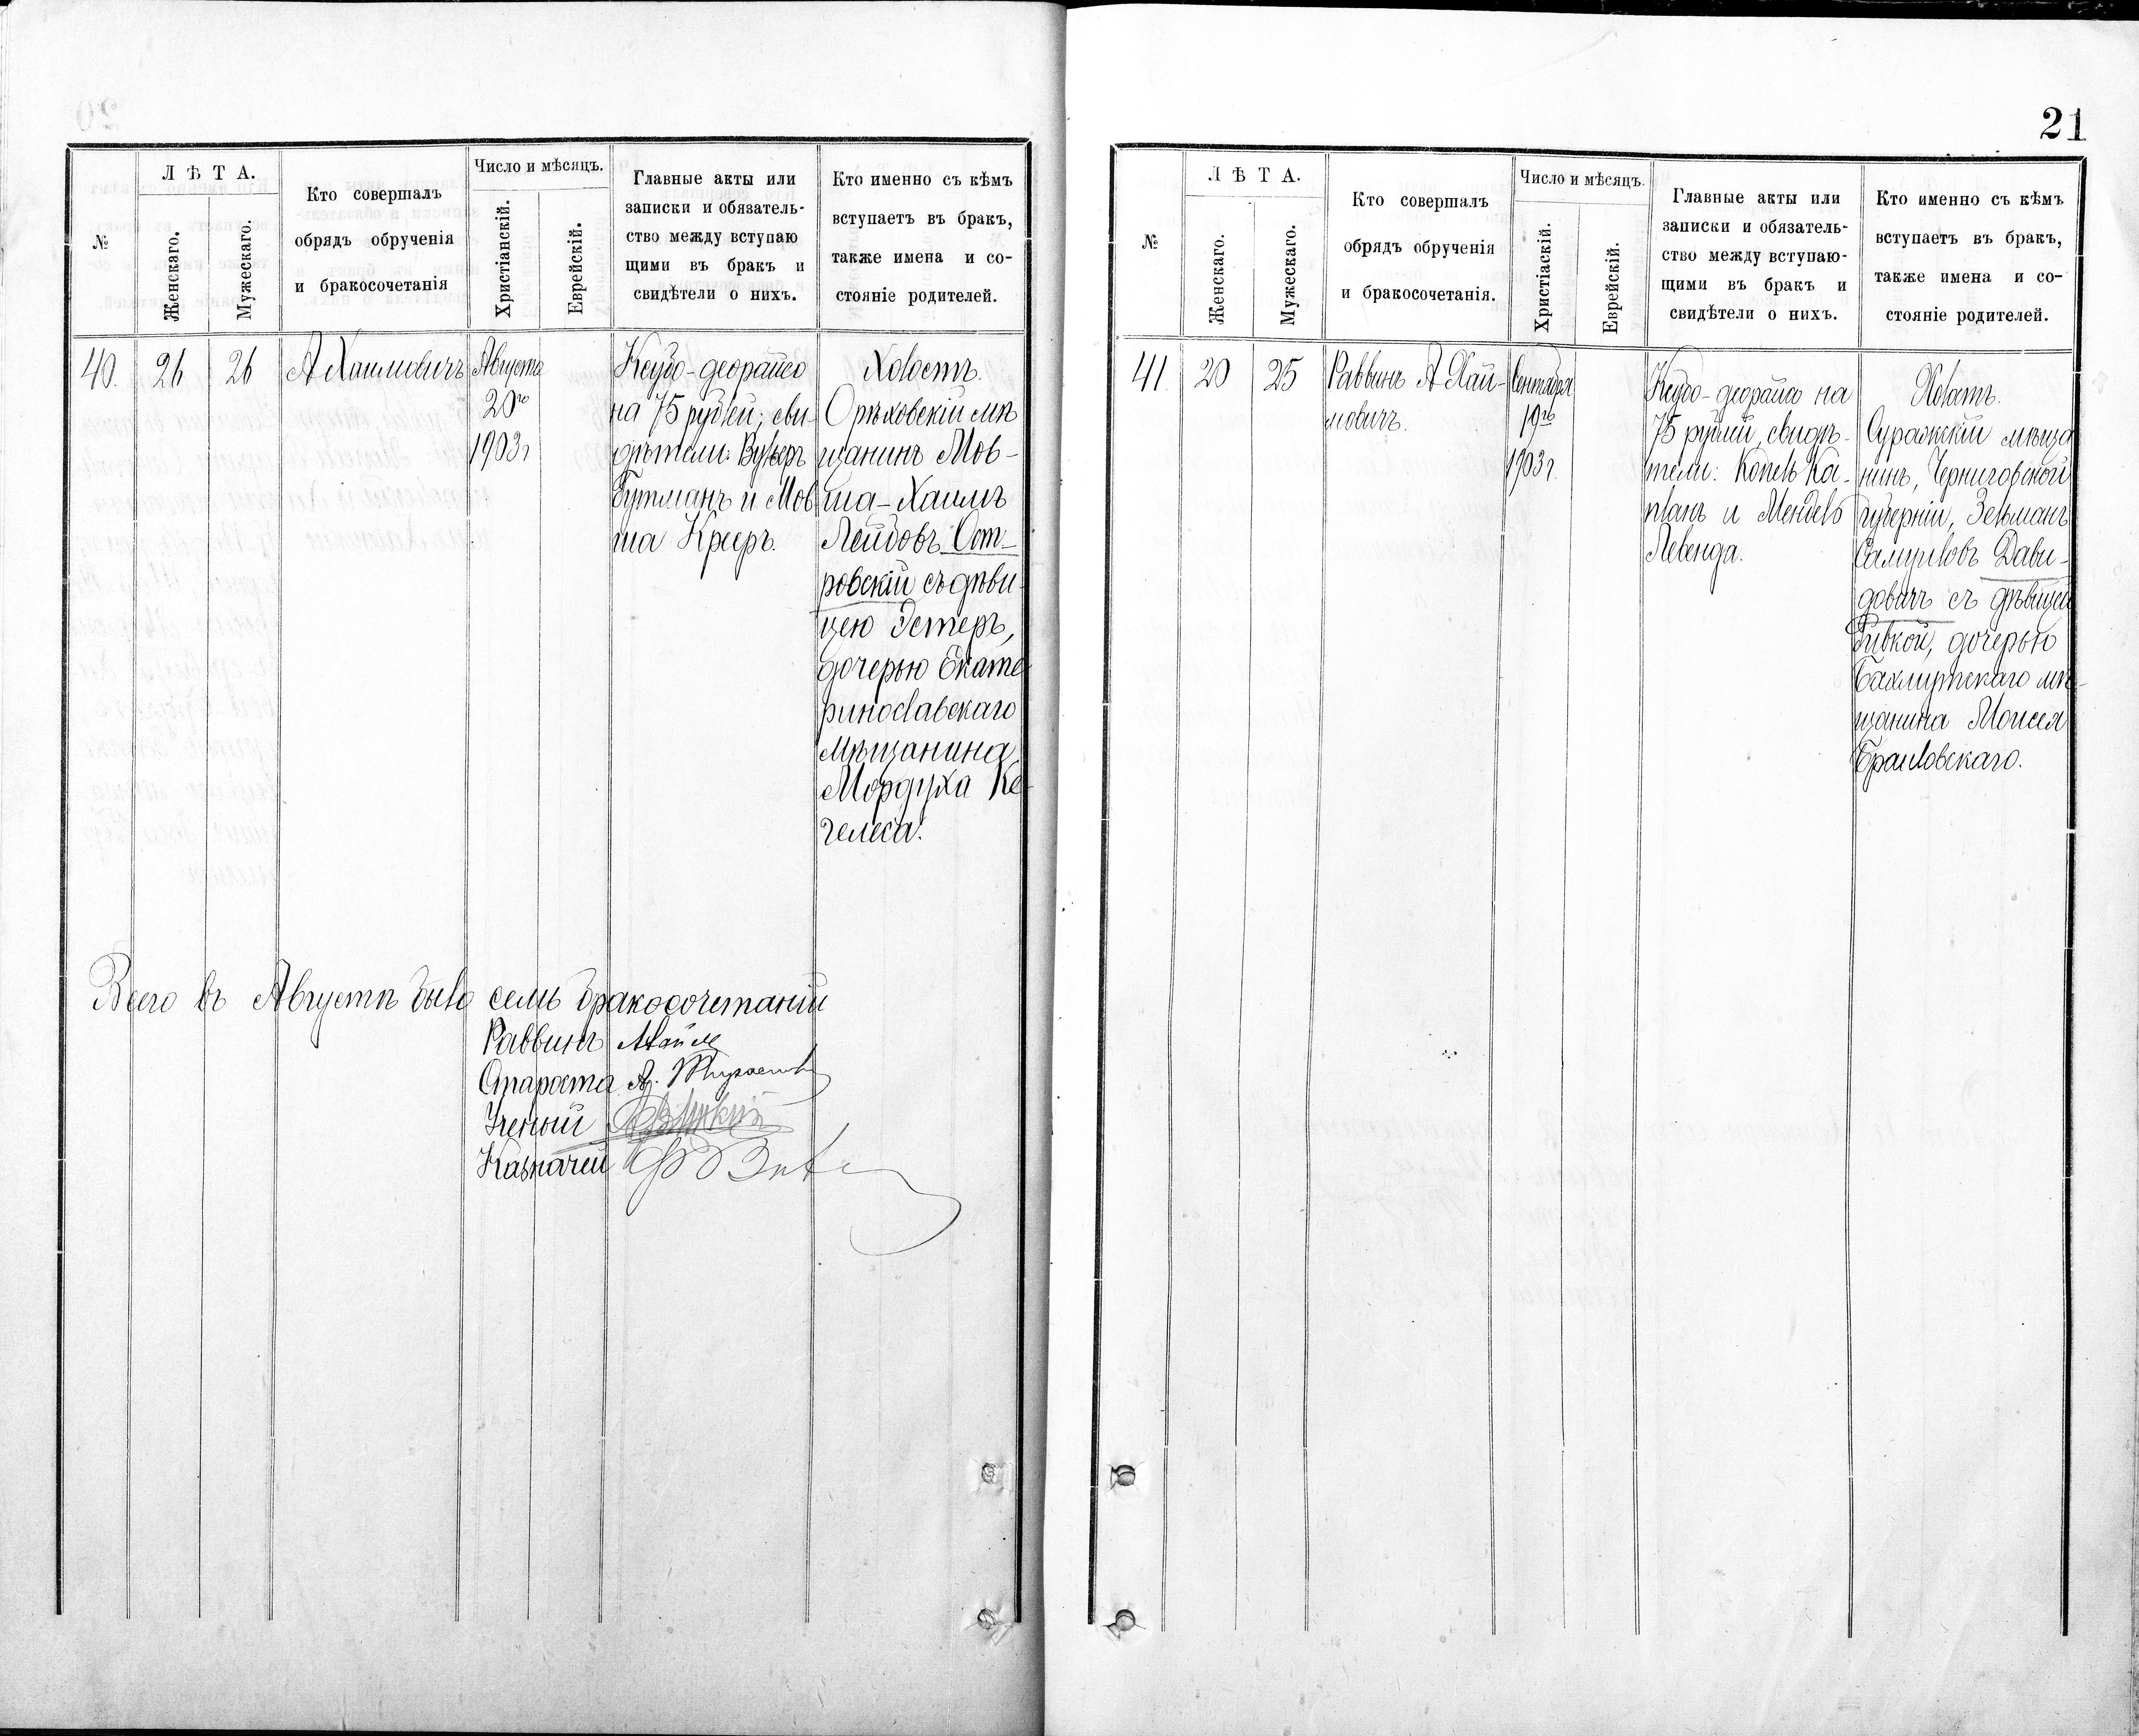 №
Л Ѣ Т А.
Женскаго.
Мужескаго.
Кто совершалъ
обрядъ обрученія
и бракосочетанія
Число и мѣсяцъ.
Христіанскій.
Еврейскій.
Главные акты или
записки и обязатель-
ство между вступаю
щими въ бракъ и
свидѣтели о нихъ.
Кто именно съ кѣмъ
вступаетъ въ бракъ,
также имена и со-
стояніе родителей.
40.
26
26
А Хаимовичъ
Августа
20го
1903 г
Ксубо-деорайсо
на 75 рублей; сви-
дѣтели:
Гутманъ и Мов
ша Креръ.
Холостъ.
Орѣховскій мѣ
щанинъ Мов-
ша-Хаимъ
Лейбовъ Ост-
ровскій съ дѣви-
цею Эстеръ,
дочерью Екате
ринославскаго
мѣщанина
Мордуха Ке-
гелеса.
Всего въ Августѣ было семь бракосочетаній
Раввинъ
Староста
Ученый
Казначей
21
№
Л Ѣ Т А.
Женскаго.
Мужескаго.
Кто совершалъ
обрядъ обрученія
и бракосочетанія.
Число и мѣсяцъ.
Христіаскій.
Еврейскій.
Главные акты или
записки и обязатель-
ство между вступаю-
щими въ бракъ и
свидѣтели о нихъ.
Кто именно съ кѣмъ
вступаетъ въ бракъ,
также имена и со-
стояніе родителей.
41.
20
25
Раввинъ А Хай-
мовичъ.
Сентября
19го
1903 г.
Ксубо-деорайсо на
75 рублей, свидѣ-
тели: Копель Ка-
планъ и Мендель
Левенда.
Холостъ.
Суражскій мѣща
нинъ, Черниговской
губерніи, Зельманъ
Самуиловъ Дави-
довичъ съ дѣвицей
Ривкой, дочерью
Бахмутскаго мѣ-
щанина Моисея
Браиловскаго.